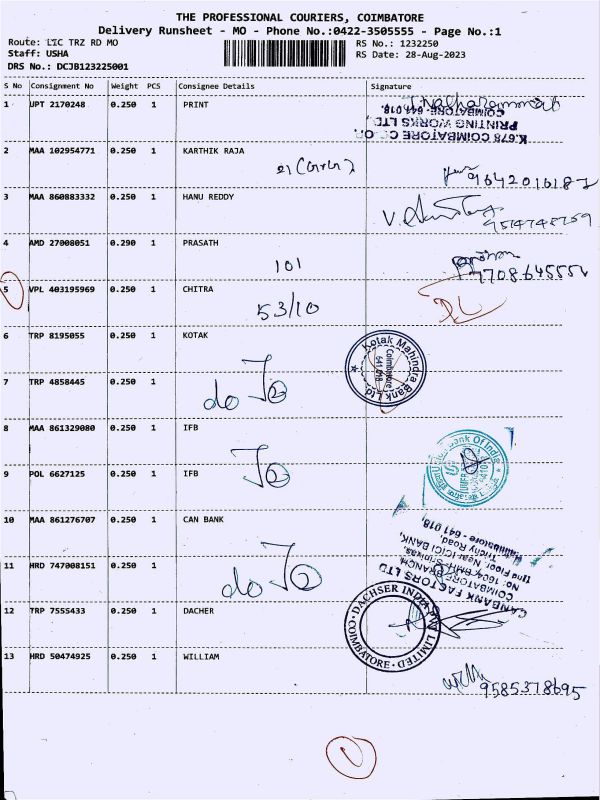 THE PROFESSIONAL COURIERS, COIMBATORE
Delivery Runsheet - MO - Phone No.:0422-3505555 - Page No.:1
Route: LIC TRZ RD MO
Staff: USHA
DRS No.: DCJB123225001
RS No.: 1232250
RS Date: 28-Aug-2023
S No Consignment No Weight PCS Consignee Details Signature
1 UPT 2170248 0.250 1 PRINT
K.678 COIMBATORE
PRINTING WORKS LTD.,
COIMBATORE- 641 018.
2 MAA 102954771 0.250 1 KARTHIK RAJA
9642016187
3 MAA 860883332 0.250 1 HANU REDDY
4 AMD 27008051 0.290 1 PRASATH
101
7708645552
5 VPL 403195969 0.250 1 CHITRA
53/10
DL
6 TRP 8195055 0.250 1 KOTAK
Kotak Mahindra Bank Ltd
Coimbatore
641 018
7 TRP 4858445 0.250 1
do
8 MAA 861329080 0.250 1 IFB
9 POL 6627125 0.250 1 IFB
10 MAA 861276707 0.250 1 CAN BANK
CANBANK FACTORS LTD
COIMBATORE BRANCH
IInd Floor, Near ICICI BANK,
Trichy Road,
11 HRD 747008151 0.250 1
do
12 TRP 7555433 0.250 1 DACHER
DACHSER INDIA LIMITED
COIMBATORE
13 HRD 50474925 0.250 1 WILLIAM
9585378695